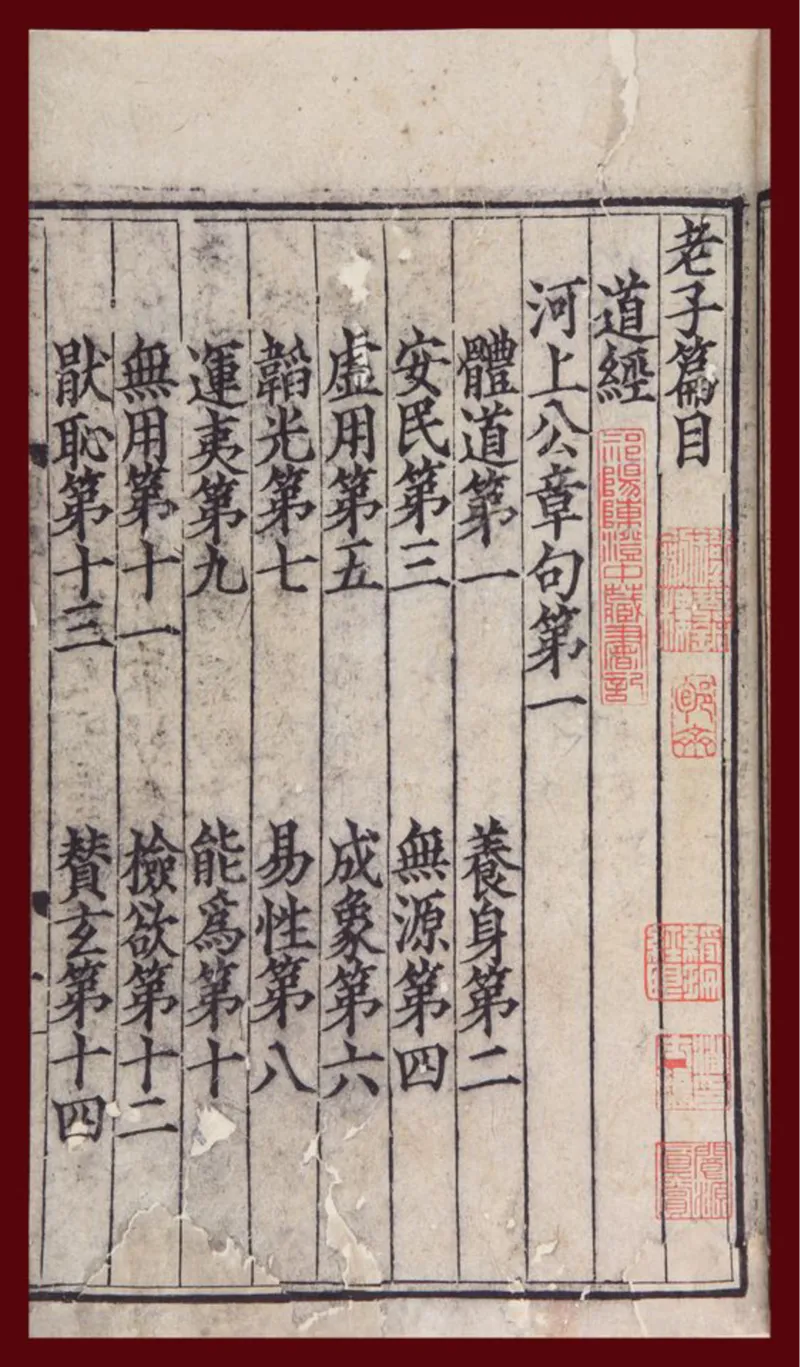 老子篇目
道經
祁陽陳澄中藏書記
河上公章句第一
體道第一 養身第二
安民第三 無源第四
虛用第五 成象第六
韜光第七 易性第八
運夷第九 能爲第十
無用第十一 檢欲第十二
猒恥第十三 贊玄第十四